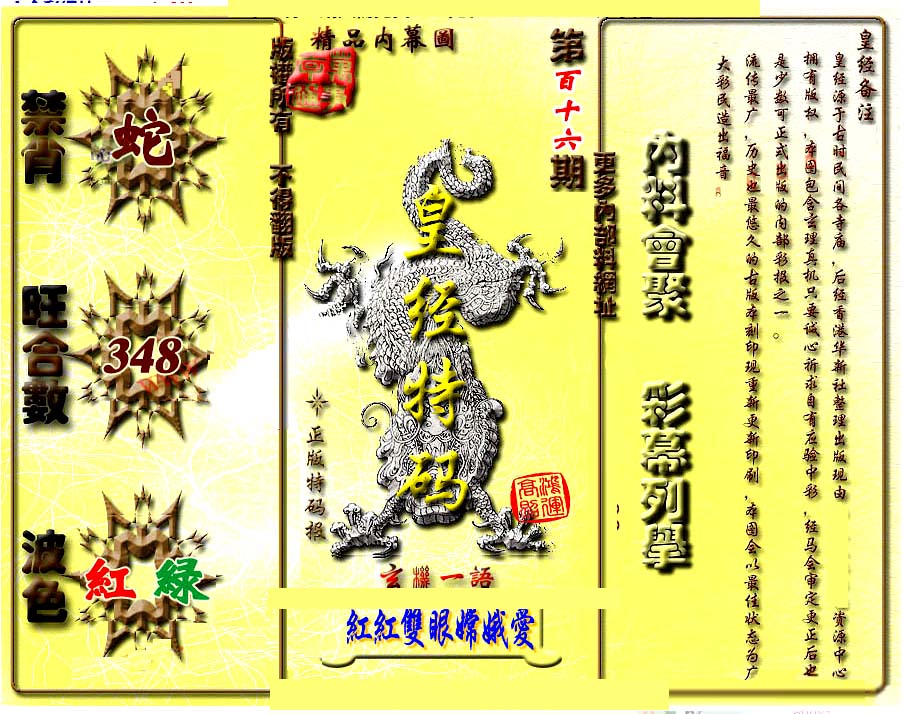 皇经备注
皇经源于古时民间各寺庙，后经香港华新社整理出版现由
资源中心
拥有版权，本图包含玄理真机只要诚心祈求自有应验中彩，经马会审定更正后也
是少数可正式出版的内部彩报之一。
流传最广，历史也最悠久的古版本刻印现重新更新印刷，本图会以最佳状态为广
大彩民造出福音
內料會聚
彩幕列舉
更多內部料網址
第百十六期
精品内幕圖
皇经特码
正版特码报
鴻運高照
玄機一語
紅紅雙眼嫦娥愛
版權所有 不得翻版
禁肖
蛇
旺合數
348
波色
紅 緑